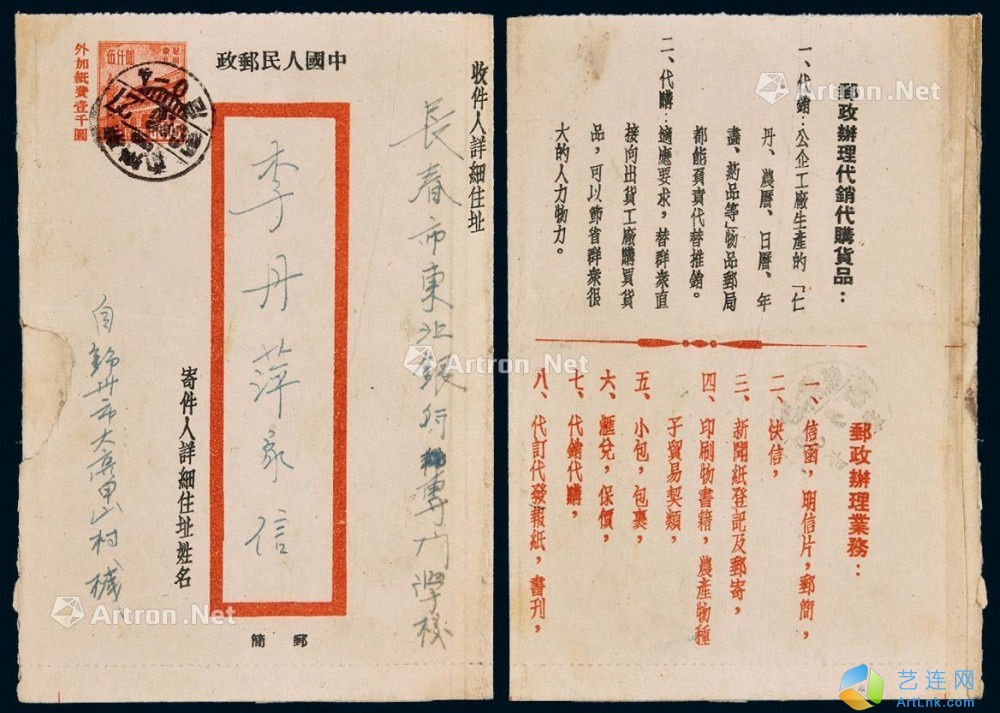 中國人民郵政
收件人詳細住址
長春市東北銀行專門學校
李丹萍家信
寄件人詳細住址姓名
自錦州市大
山村
郵簡
伍仟圓
外加紙費壹千圓
27
郵政辦理代銷代購貨品：
一、代銷：公企工廠生產的「仁
丹、農曆、日曆、年
畫、葯品等」物品郵局
都能負責代替推銷。
二、代購：適應要求，替群衆直
接向出貨工廠購買貨
品，可以節省群衆很
大的人力物力。
郵政辦理業務：
一、信函，明信片，郵簡，
二、快信，
三、新聞紙登記及郵寄，
四、印刷物書籍，農產物種
子貿易契類，
五、小包，包裹，
六、滙兌，保價，
七、代銷代購，
八、代訂代發報紙，書刊，
Artron.Net
Artron.Net
Artron.Net
Artron.Net
Artron.Net
Artron.Net
艺连网
ArtLnk.com